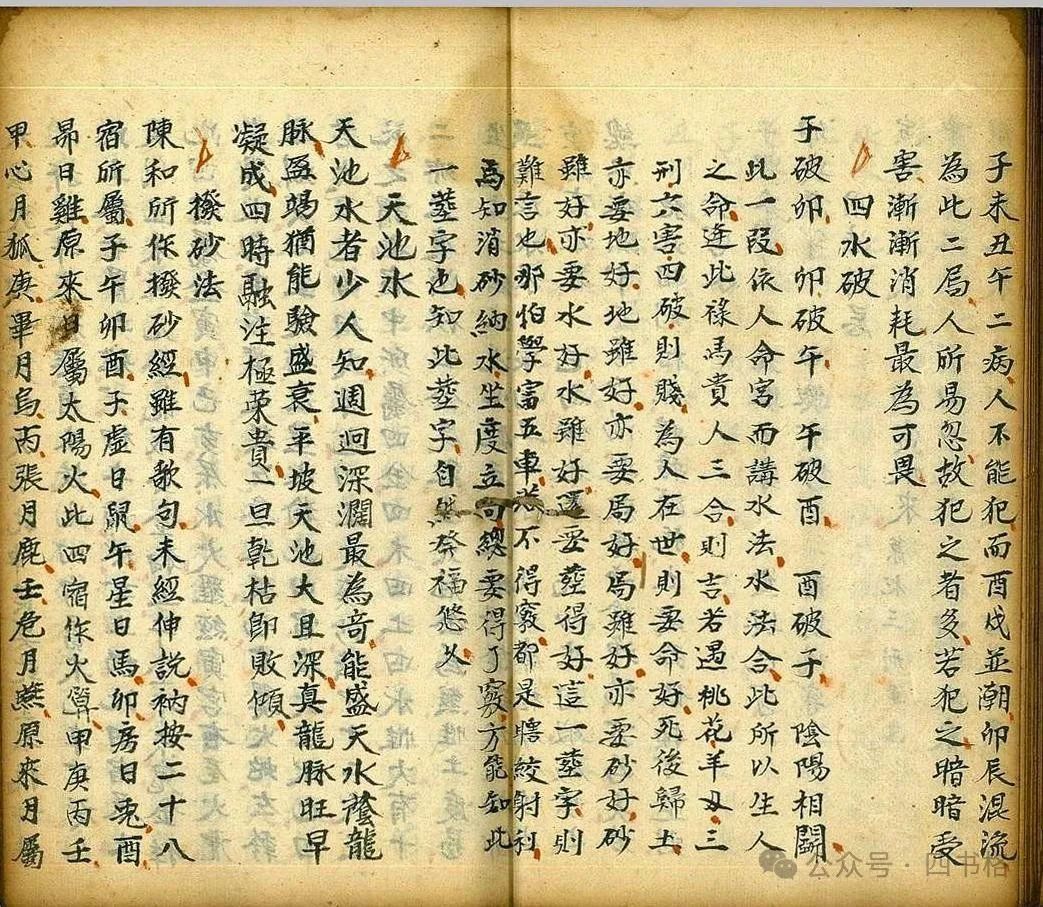 子未丑午二病人不能犯而酉戌並潮卯辰混流
為此二局人所易忽故犯之者多若犯之暗暗受
害漸漸消耗最為可畏
四水破
子破卯 卯破午 午破酉 酉破子 陰陽相鬪
此一段依人命宮而講水法水法合此所以生人
之命逢此祿馬貴人三合則吉若遇桃花羊刃三
刑六害四破則賤為人在世則要命好死後歸土
亦要地好地雖好亦要局好局雖好亦要砂好砂
雖好亦要水好水雖好還要塟得好這一塟字則
難言也那怕學富五車若不得竅都是瞎絞射利
焉知消砂納水坐度立向總要得了竅方能知此
一塟字也知此塟字自然發福悠久
天池水
天池水者少人知週迴深濶最為竒能盛天水蔭龍
脉盈竭猶能驗盛衰平坡天池大且深真龍脉旺早
凝成四時融注極荣貴一旦乾枯即敗傾
撥砂法
陳和所作撥砂經雖有歌句未經伸説衲按二十八
宿所屬子午卯酉子虛日鼠午星日馬卯房日兎酉
昴日雞原來日屬太陽火此四宿作火算甲庚丙壬
甲心月狐庚畢月烏丙張月鹿壬危月燕原來月屬
公众号·四书格